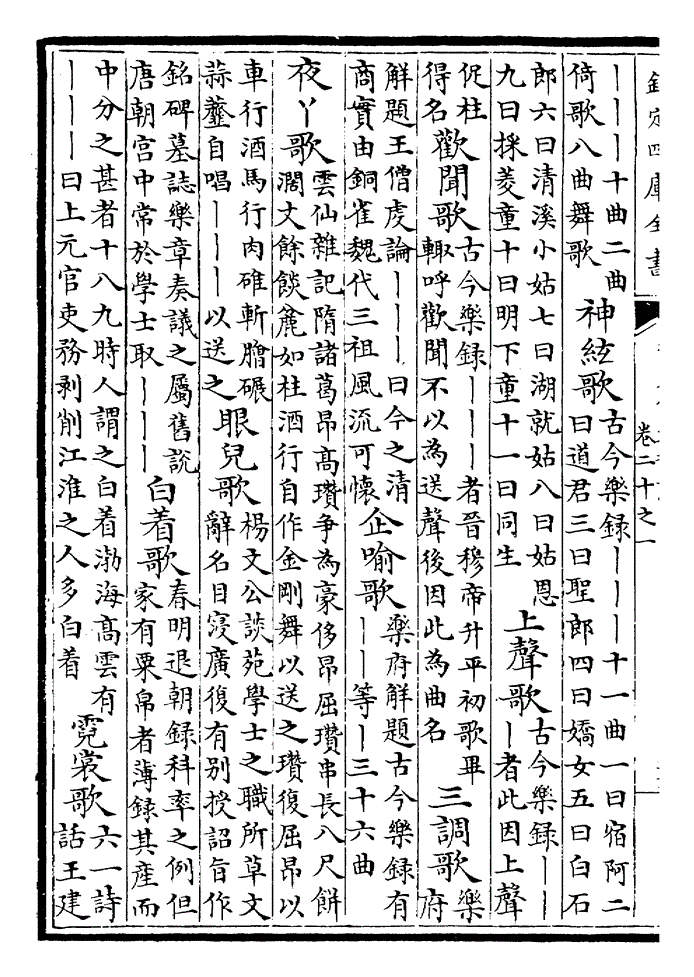 欽定四庫全書
卷二十之一
｜｜｜｜十曲二曲
倚歌八曲舞歌
神絃歌
古今樂録｜｜｜十一曲一曰宿阿二
曰道君三曰聖郎四曰嬌女五曰白石
郎六曰清溪小姑七曰湖就姑八曰姑恩
九曰採菱童十曰明下童十一曰同生
上聲歌
古今樂録｜｜
｜者此因上聲
促柱
得名
歡聞歌
古今樂録｜｜｜者晉穆帝升平初歌畢
輙呼歡聞不以為送聲後因此為曲名
三調歌
樂
府
解題王僧虔論｜｜｜曰今之清
商實由銅雀魏代三祖風流可懷
企喻歌
樂府解題古今樂録有
｜｜等｜三十六曲
夜丫歌
雲仙雜記隋諸葛昂髙瓚争為豪侈昂屈瓚串長八尺餅
濶丈餘餤麄如柱酒行自作金剛舞以送之瓚復屈昂以
車行酒馬行肉碓斬膾碾
蒜虀自唱｜｜｜以送之
眼兒歌
楊文公談苑學士之職所草文
辭名目寖廣復有别授詔旨作
銘碑墓誌樂章奏議之屬舊說
唐朝宫中常於學士取｜｜｜
白着歌
春明退朝録科率之例但
家有粟帛者薄録其產而
中分之甚者十八九時人謂之白着渤海髙雲有
｜｜｜曰上元官吏務剥削江淮之人多白着
霓裳歌
六一詩
話王建